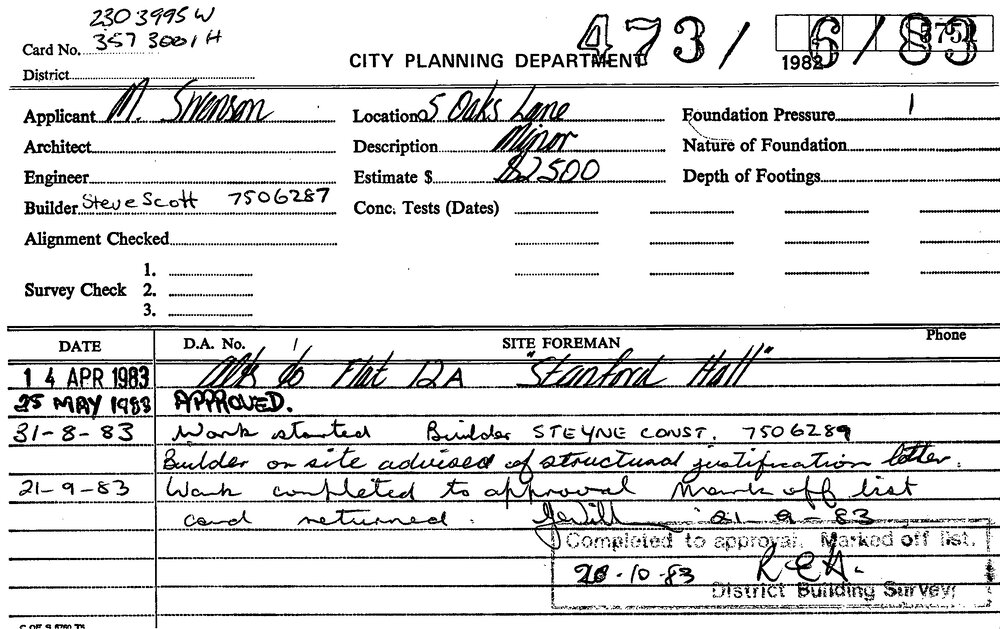 2303995W
Card No. 3573001H
473/6/83
1982
District
CITY PLANNING DEPARTMENT
Applicant M. Swenson Location 5 Oaks Lane Foundation Pressure
Architect Description Minor Nature of Foundation
Engineer Estimate $ $2500 Depth of Footings
Builder Steve Scott 7506287 Conc. Tests (Dates)
Alignment Checked
1.
Survey Check 2.
3.
DATE D.A. No. SITE FOREMAN Phone
14 APR 1983 Alts to Flat 12A "Stanford Hall"
25 MAY 1983 APPROVED.
31-8-83 Work started Builder STEYNE CONST. 7506289
Builder on site advised of structural justification letter.
21-9-83 Work completed to approval Mark off list
card returned. 21-9-83
Completed to approval. Marked off list.
28-10-83 R.E.H.
District Building Survey